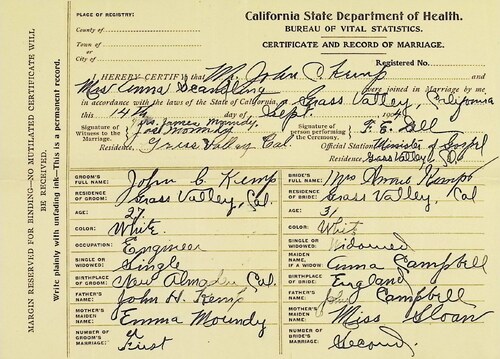 PLACE OF REGISTRY:
County of
Town of
or
City of
California State Department of Health.
BUREAU OF VITAL STATISTICS.
CERTIFICATE AND RECORD OF MARRIAGE.
Registered No.
I HEREBY CERTIFY that Mr. John C Kemp and
Miss Anna Scandling were joined in Marriage by me
in accordance with the laws of the State of California, Grass Valley, California
this 14th day of Sept. 190
Signature of Witness to the Marriage. Mrs. James Moundy
Jas Moundy
Residence, Grass Valley Cal.
Signature of person performing the Ceremony. F. E. Dell
Official Station Minister of Gospel
Residence Grass Valley, Cal
MARGIN RESERVED FOR BINDING—NO MUTILATED CERTIFICATE WILL BE RECEIVED.
Write plainly with unfading ink—This is a permanent record.
GROOM'S FULL NAME: John C. Kemp
RESIDENCE OF GROOM: Grass Valley, Cal.
AGE: 27
COLOR: White
OCCUPATION: Engineer
SINGLE OR WIDOWED: Single
BIRTHPLACE OF GROOM: New Almaden Cal.
FATHER'S NAME: John H. Kemp
MOTHER'S MAIDEN NAME: Emma Moundy
NUMBER OF GROOM'S MARRIAGE: First
BRIDE'S FULL NAME: Mrs Annie Kemp
RESIDENCE OF BRIDE: Grass Valley, Cal
AGE: 31
COLOR: White
SINGLE OR WIDOWED: Widowed
MAIDEN NAME, IF A WIDOW: Anna Campbell
BIRTHPLACE OF BRIDE: England
FATHER'S NAME: Campbell
MOTHER'S MAIDEN NAME: Miss Sloan
NUMBER OF BRIDE'S MARRIAGE: Second.